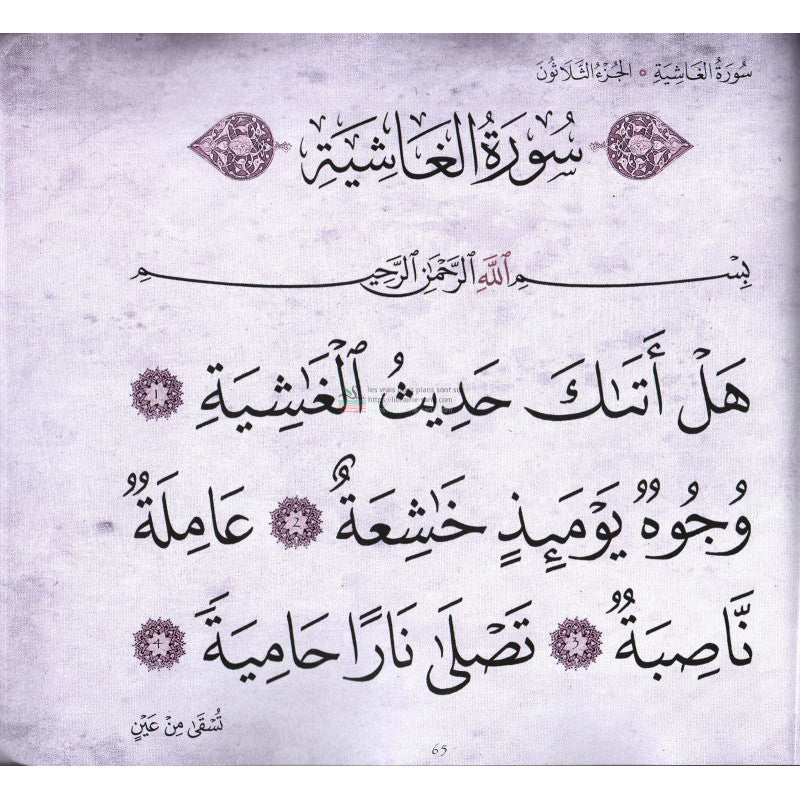 سُورَةُ الغَاشِيَةِ • الجُزْءُ الثَّلَاثُونَ
سُورَةُ الغَاشِيَةِ
بِسْمِ ٱللَّهِ ٱلرَّحْمَٰنِ ٱلرَّحِيمِ
هَلْ أَتَىٰكَ حَدِيثُ ٱلْغَٰشِيَةِ 1
وُجُوهٌ يَوْمَئِذٍ خَٰشِعَةٌ 2 عَامِلَةٌ
نَّاصِبَةٌ 3 تَصْلَىٰ نَارًا حَامِيَةً 4
تُسْقَىٰ مِنْ عَيْنٍ
65